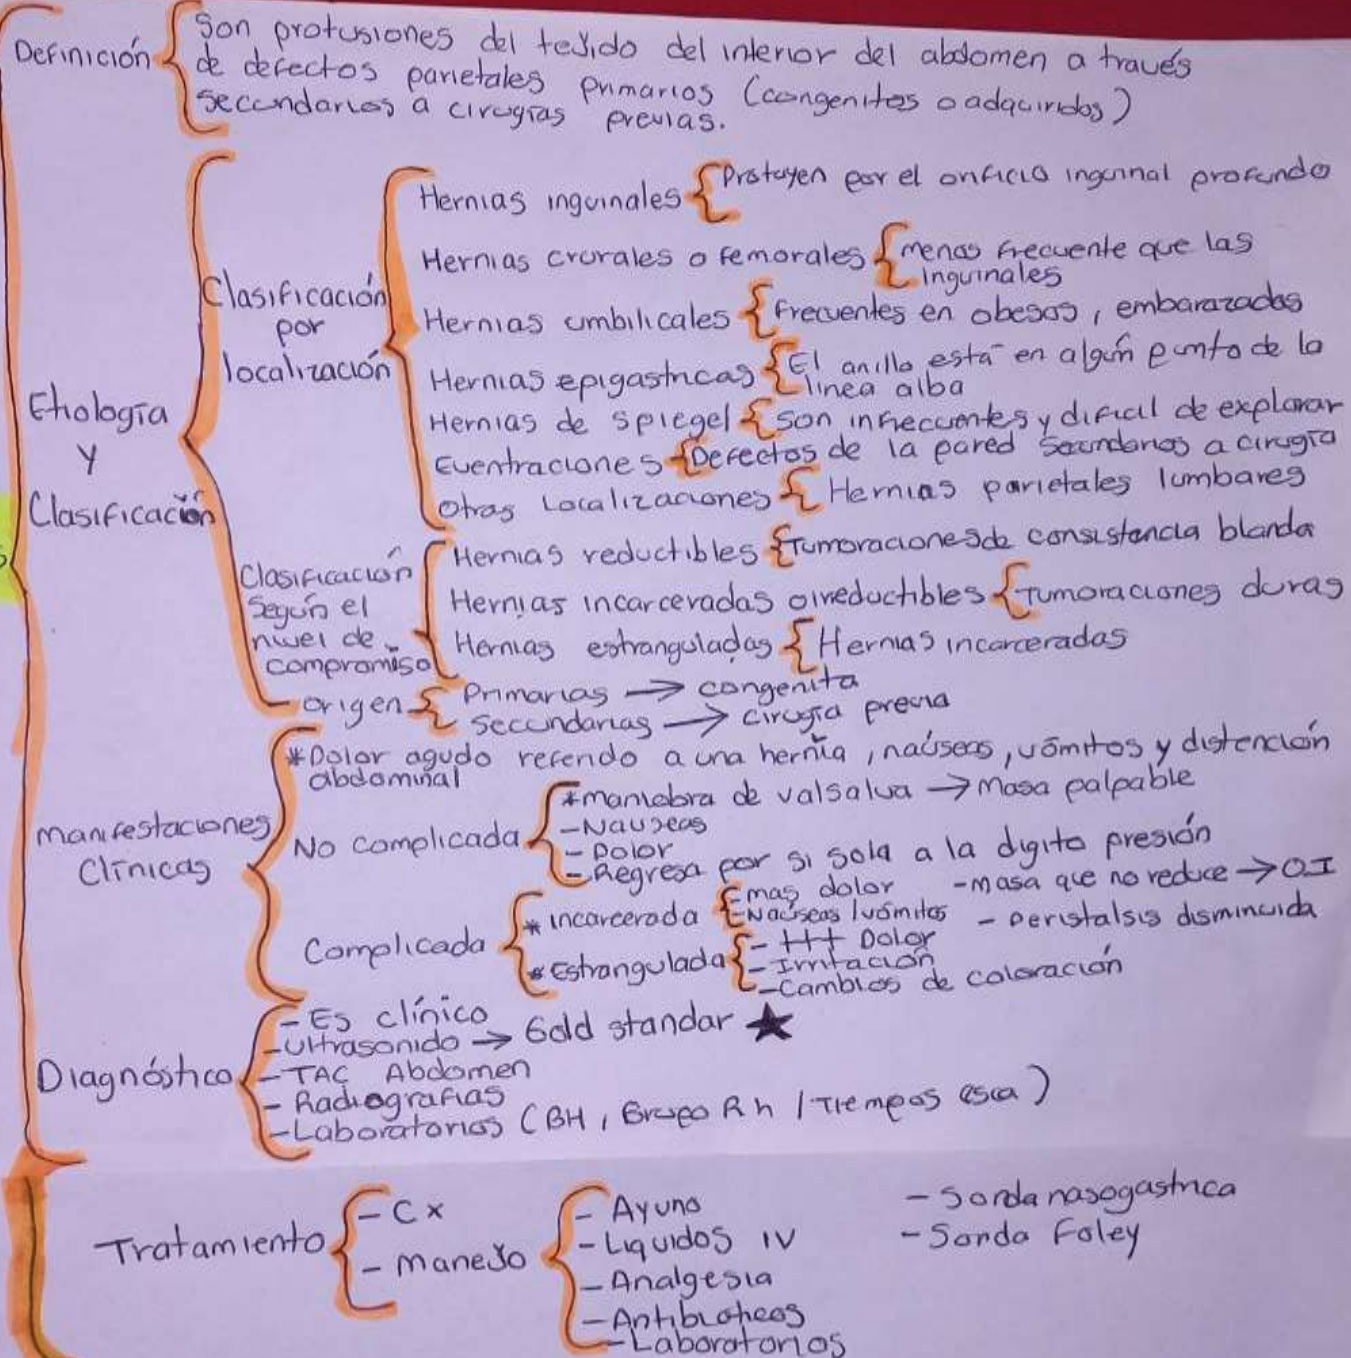 Definición
Son protusiones del tejido del interior del abdomen a través
de defectos parietales primarios (congenitos o adquiridos)
secundarios a cirugías previas.
Etiología
y
Clasificación
Clasificación
por
localización
Hernias inguinales
Protuyen por el orificio inguinal profundo
Hernias crurales o femorales
menos frecuente que las
inguinales
Hernias umbilicales
Frecuentes en obesos, embarazadas
Hernias epigastricas
El anillo está en algún punto de la
linea alba
Hernias de spiegel
son infrecuentes y dificil de explorar
Eventraciones
Defectos de la pared secundarios a cirugía
otras Localizaciones
Hernias parietales lumbares
Clasificación
según el
nivel de
compromiso
Hernias reductibles
Tumoraciones de consistencia blanda
Hernias incarceradas o irreductibles
Tumoraciones duras
Hernias estranguladas
Hernias incarceradas
origen
Primarias → congenita
Secundarias → cirugía previa
Manifestaciones
Clínicas
*Dolor agudo referido a una hernia, naúseas, vómitos y distención
abdominal
No complicada
*maniobra de valsalva → Masa palpable
-Nauseas
-Dolor
-Regresa por si sola a la digito presión
Complicada
*incarcerada
mas dolor -masa que no reduce → OI
Naúseas/vómitos - peristalsis disminuida
*Estrangulada
- +++ Dolor
-Irritación
-Cambios de coloración
Diagnóstico
-Es clínico
-Ultrasonido → Gold standar ★
-TAC Abdomen
-Radiografias
-Laboratorios (BH, Grupo Rh / Tiempos
Tratamiento
-Cx
-Manejo
-Ayuno
-Liquidos IV
-Analgesia
-Antibioticos
-Laboratorios
-Sonda nasogastrica
-Sonda Foley